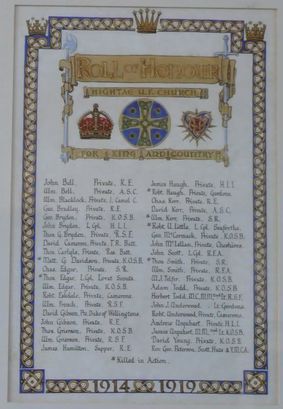 ROLL OF HONOUR
HIGHTAE U.F. CHURCH
FOR KING AND COUNTRY
John Bell, Private, R.E.
Wm. Bell, Private, A.S.C.
Wm. Blacklock, Private,
Geo. Bradley, Private, R.E.
Geo. Brydon, Private, K.O.S.B.
John Brydon, L.Cpl. H.L.I.
Thos. G. Brydon, Private, R.S.F.
David Cameron, Private, T.R. Batt.
Thos. Carlyle, Private, Res. Batt.
* Matt. G. Davidson, Private, K.O.S.B.
Chas. Edgar, Private, S.R.
* Thos. Edgar, L.Cpl. Lovat Scouts
Wm. Edgar, Private, K.O.S.B.
Robt. Private, Camerons
Wm. French, Private, R.S.F.
David Gibson, Pte. Duke of Wellingtons
John Gibson, Private, R.E.
Thos. Grierson, Private, K.O.S.B.
Wm. Grierson, Private, R.S.F.
James Hamilton, Sapper, R.E.
James Haugh, Private, H.L.I.
* Robt. Haugh, Private, Gordons
Chas. Kerr, Private, R.E.
David Kerr, Private, A.S.C.
* Wm. Kerr, Private, S.R.
* Robt. U. Little, L.Cpl. Seaforths
Geo. McCormack, Private, K.O.S.B.
John McLellan, Private, Cheshires
John Scott, L.Cpl. R.F.A.
* Thos. Smith, Private, S.R.
Wm. Smith, Private, R.F.A.
Private, K.O.S.B.
Adam Todd, Private, K.O.S.B.
Herbert Todd, M.C., M.M. R.G.F.
John J. Underwood, Lt. Gordons
Robt. Underwood, Private, Camerons
Andrew Unpehart, Private, H.L.I.
James Unpehart, M.M. K.O.S.B.
David Young, Private, K.O.S.B.
Rev. Geo. Paterson, Scot. Huts & Y.M.C.A.
* Killed in Action.
1914 1919